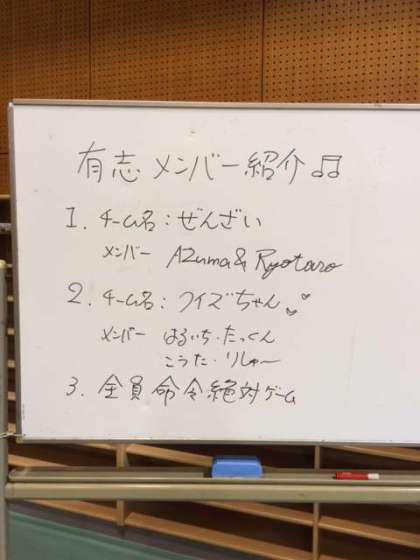 有志メンバー紹介♫
1. チーム名：ぜんざい
メンバー Azuma & Ryotaro
2. チーム名：クイズちゃん♡♡
メンバー はるいち・たっくん
こうた・りしゃ〜
3. 全員命令絶対ゲーム